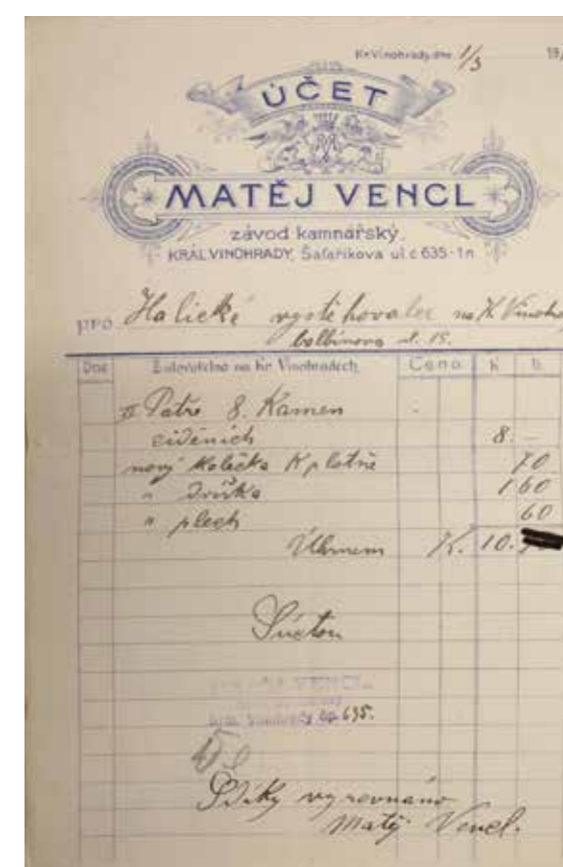 Kr. Vinohrady, dne 1/3 19
ÚČET
MATĚJ VENCL
závod kamnářský,
KRÁL. VINOHRADY, Šafaříkova ul. č 635-1n
pro Halické vystěhovalec na K. Vinohr
balbinova ul. 15.
Dne Žalovatelno na Kr. Vinohradech. Cena K h
II Patro 8. Kamen
ciděních 8. –
nový kolečka K plotně 70
" Dvířka 1 60
" plech 60
Úhrnem K. 10.
S úctou
VENCL
Král. Vinohrady čp 635.
Díky vyrovnáno
Matěj Vencl.